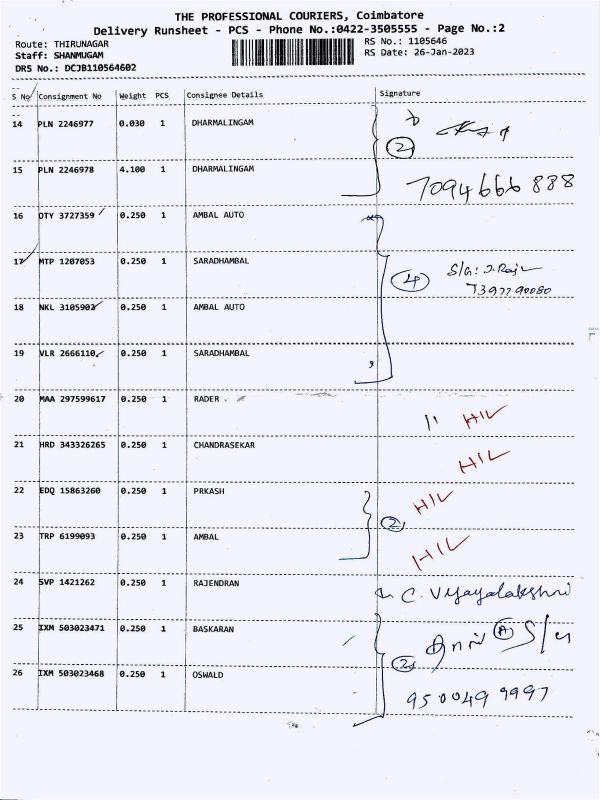 THE PROFESSIONAL COURIERS, Coimbatore
Delivery Runsheet - PCS - Phone No.:0422-3505555 - Page No.:2
Route: THIRUNAGAR
Staff: SHANMUGAM
DRS No.: DCJB110564602
RS No.: 1105646
RS Date: 26-Jan-2023
S No Consignment No Weight PCS Consignee Details Signature
14 PLN 2246977 0.030 1 DHARMALINGAM
2
15 PLN 2246978 4.100 1 DHARMALINGAM
7094666 888
16 DTY 3727359 0.250 1 AMBAL AUTO
17 MTP 1207053 0.250 1 SARADHAMBAL
4
7397790080
18 NKL 3105902 0.250 1 AMBAL AUTO
19 VLR 2666110 0.250 1 SARADHAMBAL
20 MAA 297599617 0.250 1 RADER
HIL
21 HRD 343326265 0.250 1 CHANDRASEKAR
HIL
22 EDQ 15863260 0.250 1 PRKASH
HIL
2
23 TRP 6199093 0.250 1 AMBAL
HIL
24 SVP 1421262 0.250 1 RAJENDRAN
C. Vijayalakshmi
25 IXM 503023471 0.250 1 BASKARAN
2
26 IXM 503023468 0.250 1 OSWALD
950049 9997